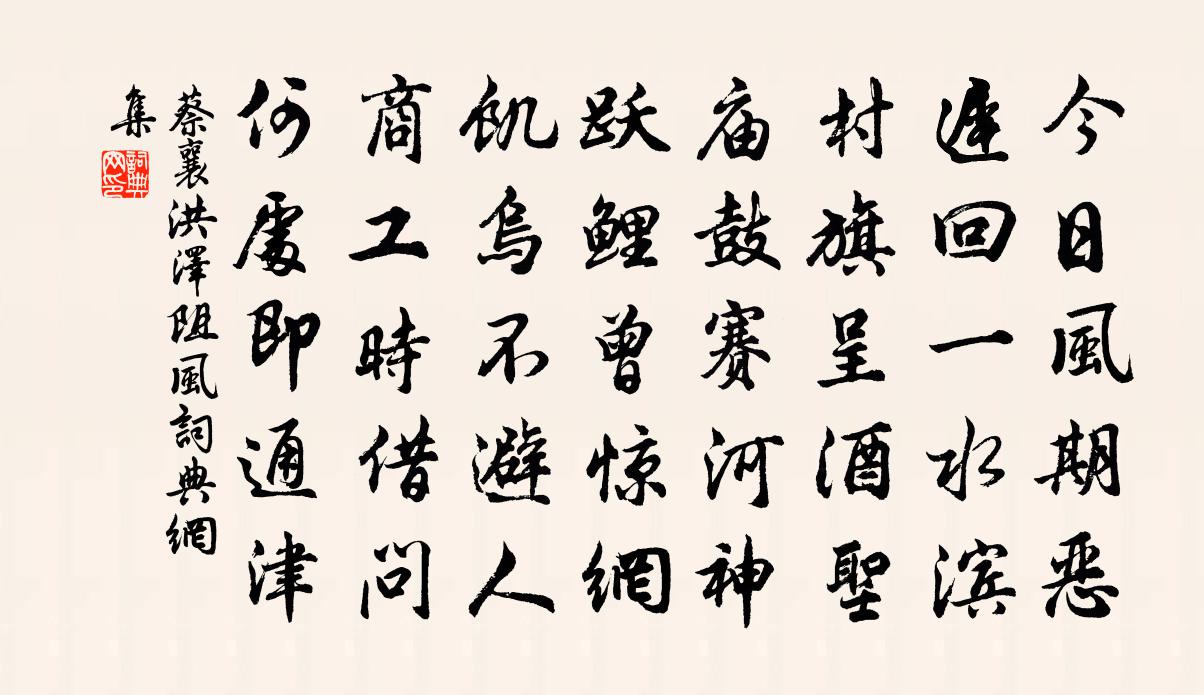 今日風期恶
遲回一水滨
村旗呈酒聖
庙鼓賽河神
跃鲤曾惊網
飢烏不避人
商工時借問
何處即通津
蔡襄洪澤阻風詞典網
集
詞典網印